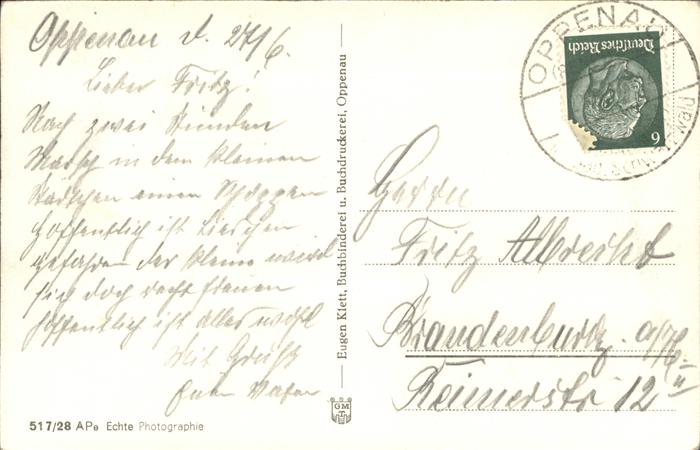 Oppenau d. 27/6.
Lieber Fritz!
Nach zwei Stunden
Marsch in dem kleinen
Städtchen einen Schoppen
Hoffentlich ist Lieschen
gefahren der Kleine wird
sich doch recht freuen
Hoffentlich ist alles wohl
Mit Gruß
Euer Vater
517/28 APe Echte Photographie
Eugen Klett, Buchbinderei u. Buchdruckerei, Oppenau
GM
OPPENAU
Deutsches Reich
6
Herrn
Fritz Albrecht
Brandenburg a/H
Reimerstr 12 II